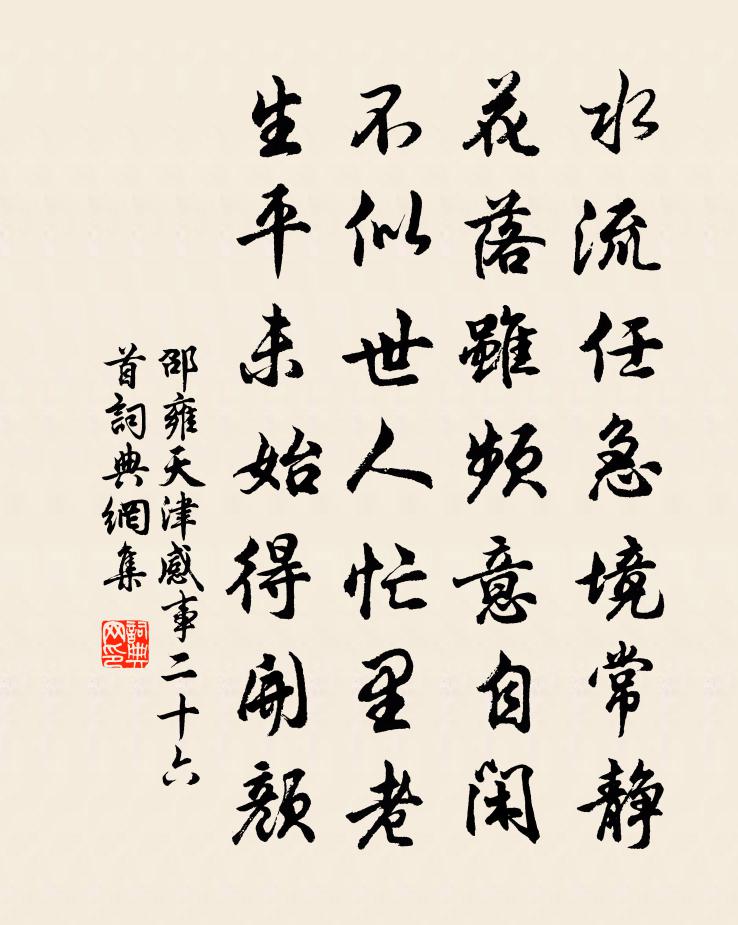 水流任急境常静
花落雖頻意自閑
不似世人忙里老
生平未始得開顏
邵雍天津感事二十六
首詞典網集
詞典网印